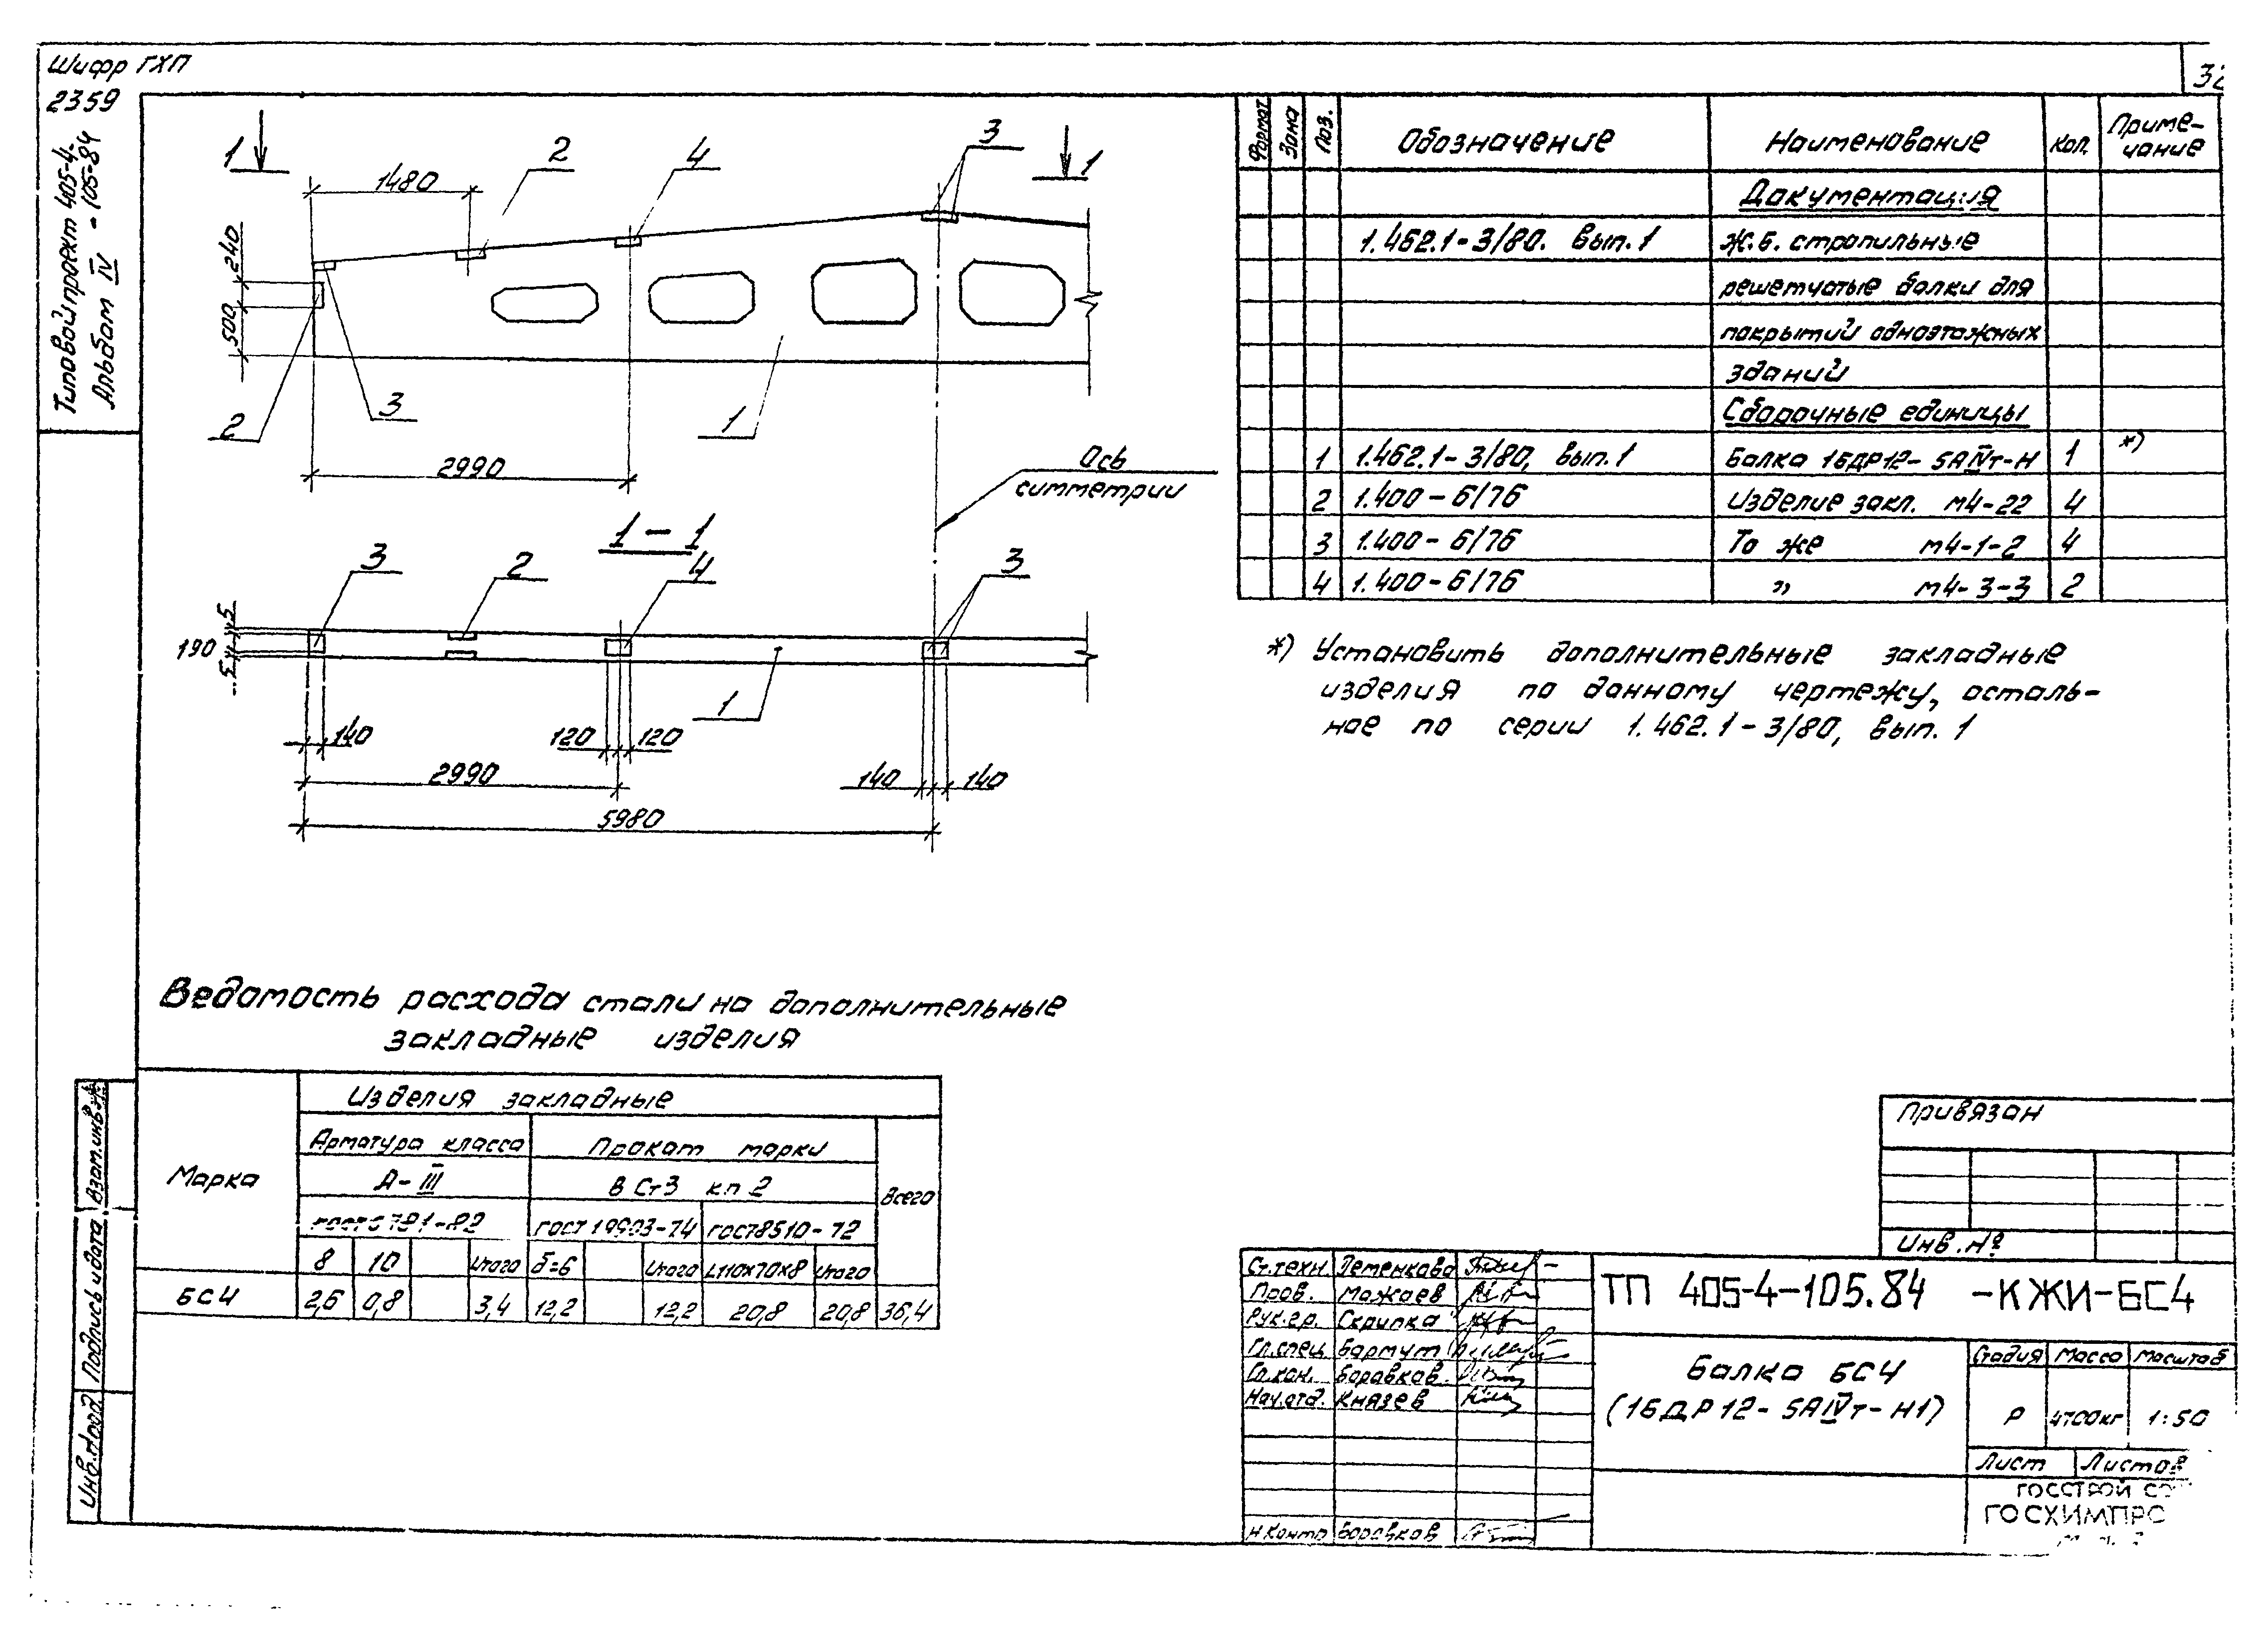 Шифр ГХП
2359
32
Типовой проект 405-4-
Альбом IV -105-84
1
1480
2
4
3
1
240
500
2
3
1
2990
Ось
симметрии
1-1
3
2
4
3
5
190
5
1
140
120
120
2990
140
140
5980
Формат Зона Поз. Обозначение Наименование Кол. Приме-
чание
Документация
1.462.1-3/80. вып.1 Ж.б. стропильные
решетчатые балки для
покрытий одноэтажных
зданий
Сборочные единицы
1 1.462.1-3/80, вып.1 Балка 1БДР12-5АIVт-Н 1 *)
2 1.400-6/76 Изделие закл. м4-22 4
3 1.400-6/76 То же м4-1-2 4
4 1.400-6/76 " м4-3-3 2
*) Установить дополнительные закладные
изделия по данному чертежу, осталь-
ное по серии 1.462.1-3/80, вып.1
Ведомость расхода стали на дополнительные
закладные изделия
Марка
Изделия закладные
Арматура класса Прокат марки
Всего
А-III ВСт3 кп2
ГОСТ 5781-82 ГОСТ 19903-74 ГОСТ 8510-72
8 10 Итого δ=6 Итого L110х70х8 Итого
БС4 2,6 0,8 3,4 12,2 12,2 20,8 20,8 36,4
Взам.инв.№
Подпись и дата
Инв.№подл.
Привязан
Инв.№
Ст.техн.
Пров. Можаев
Рук.гр. Скрипка
Гл.спец. Бармут
Гл.кон. Боровков
Нач.отд. Князев
Н.контр. Боровков
ТП 405-4-105.84 -КЖИ-БС4
Балка БС4
(1БДР12-5АIVт-Н1)
Стадия Масса Масштаб
Р 4700кг 1:50
Лист Листов
ГОССТРОЙ
ГОСХИМПРО